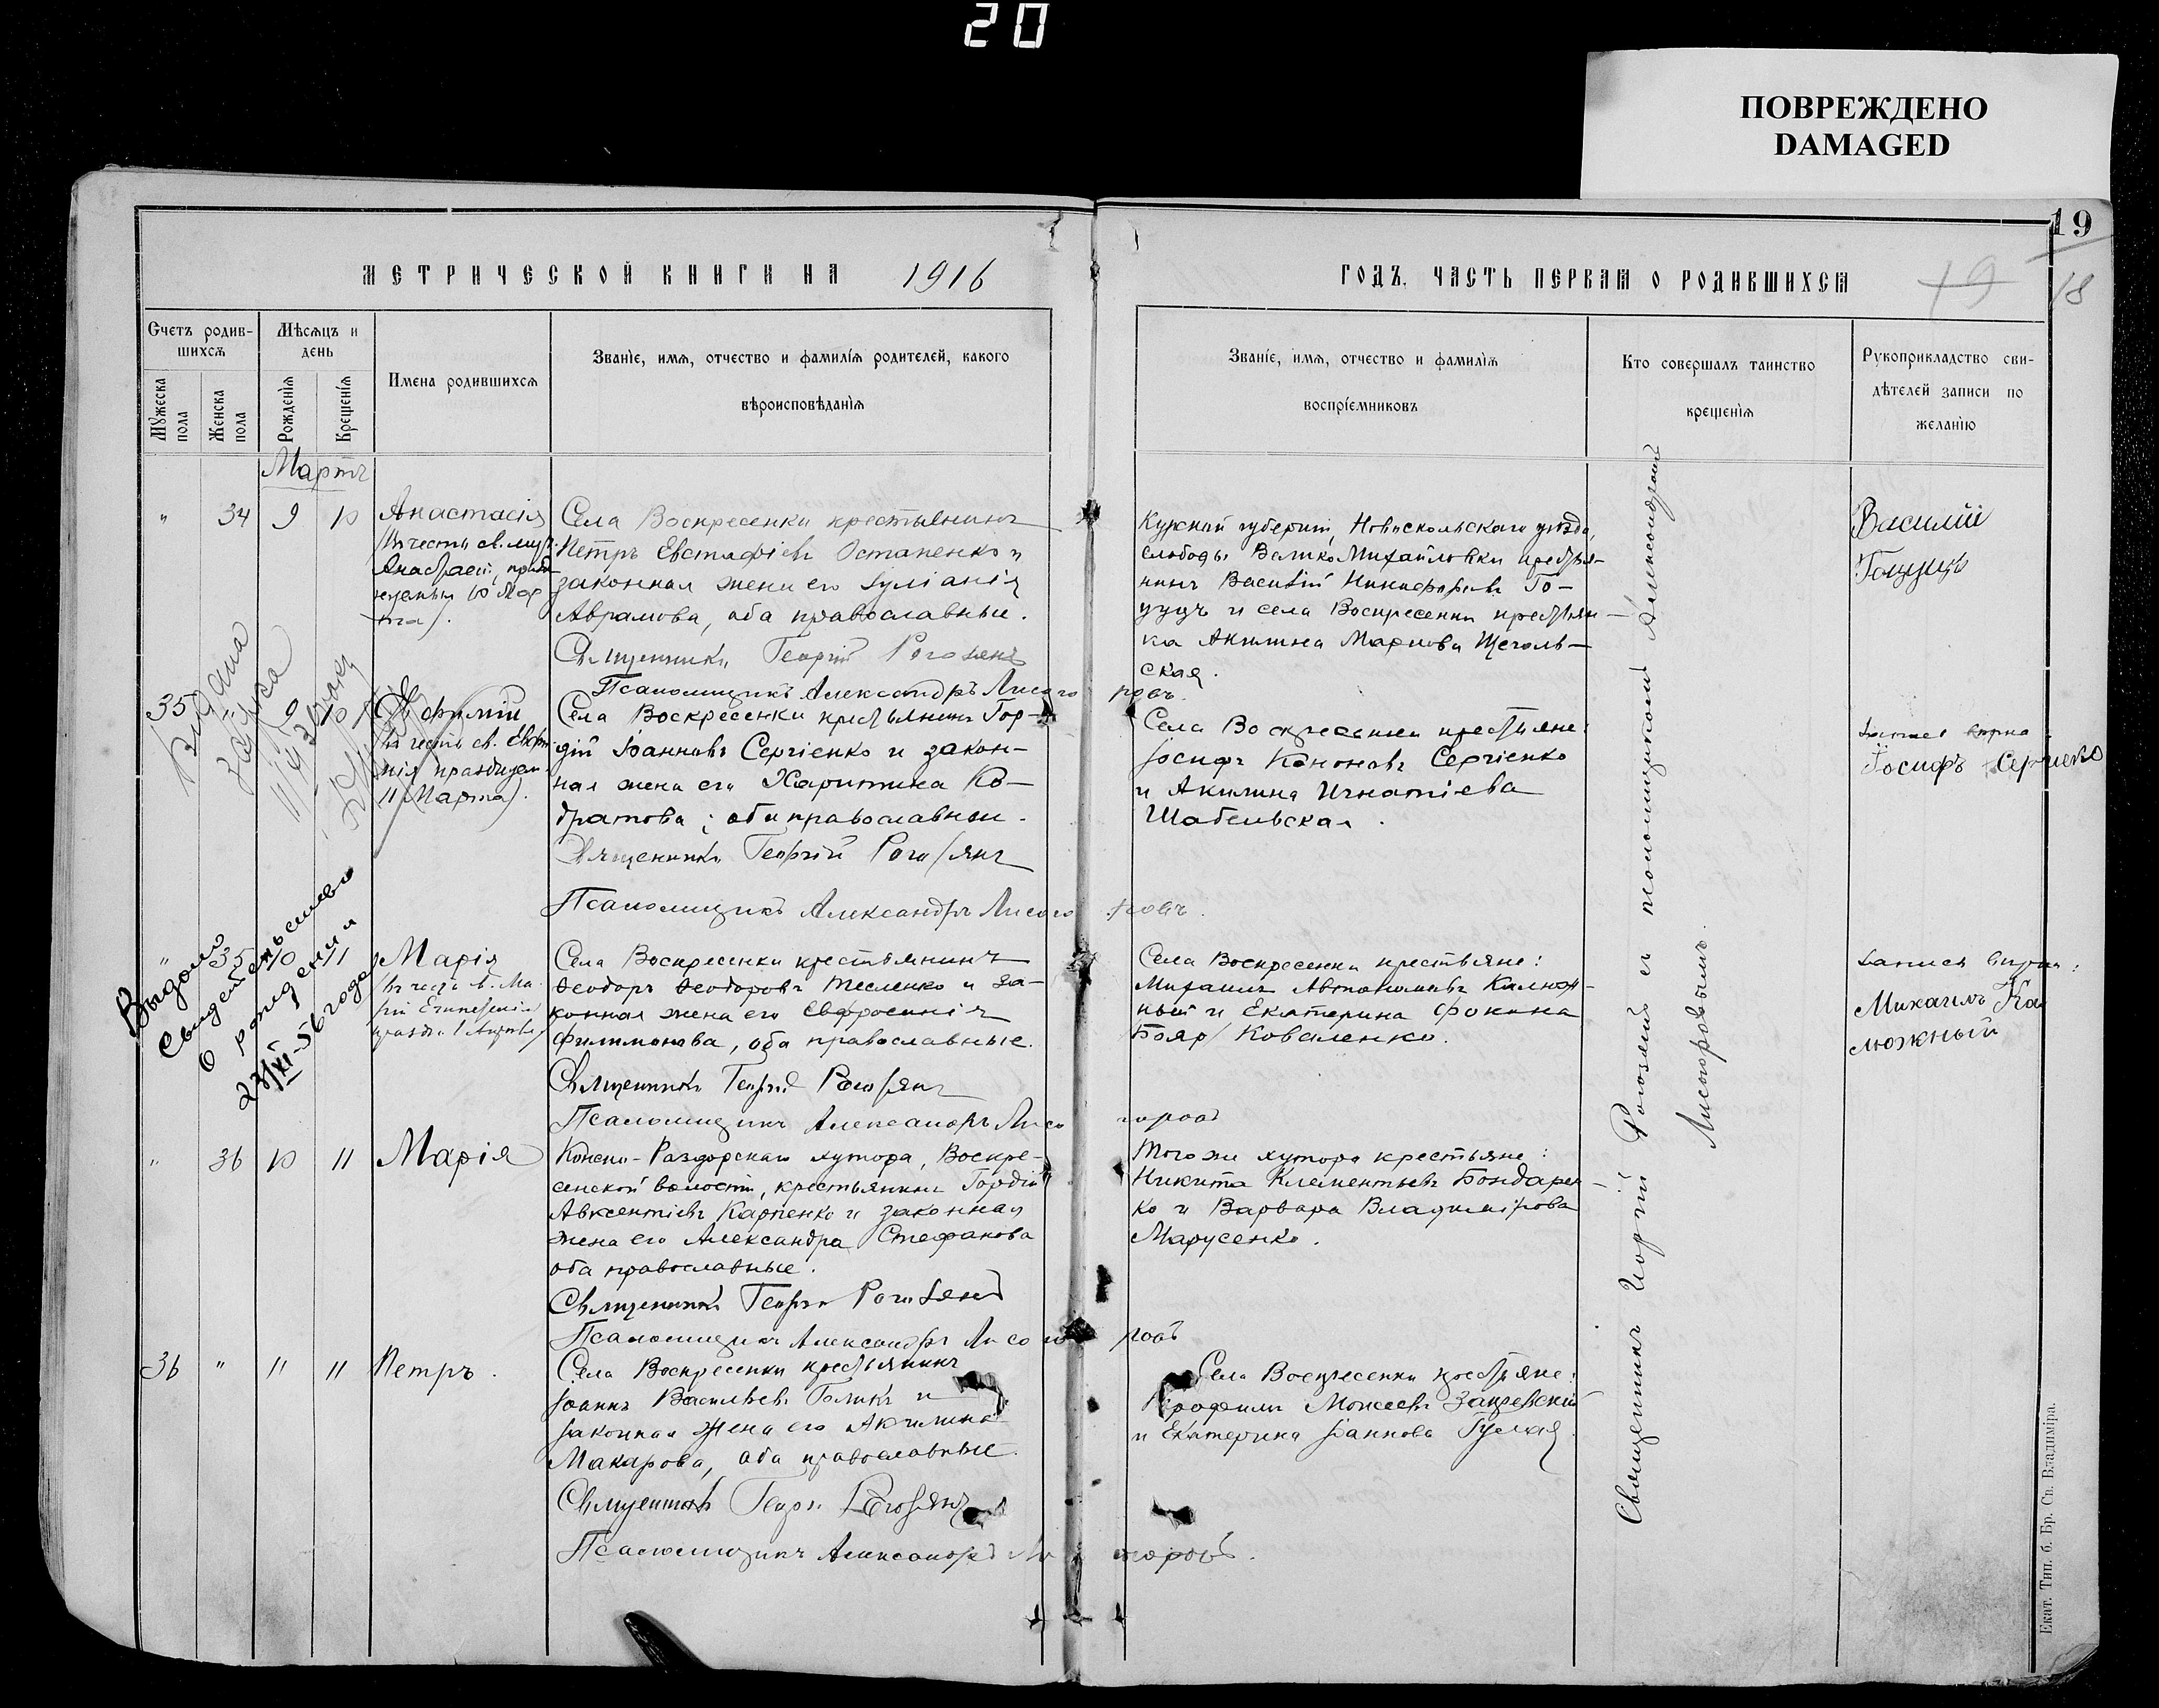 20
ПОВРЕЖДЕНО
DAMAGED
19
МЕТРИЧЕСКОЙ КНИГИ НА 1916
ГОДЪ, ЧАСТЬ ПЕРВАЯ О РОДИВШИХСЯ
19
18
Счетъ родив-
шихся
Мужеска пола
Женска пола
Мѣсяцъ и
день
Рожденія
Крещенія
Имена родившихся
Званіе, имя, отчество и фамилія родителей, какого
вѣроисповѣданія
Званіе, имя, отчество и фамилія
воспріемниковъ
Кто совершалъ таинство
крещенія
Рукоприкладство сви-
дѣтелей записи по
желанію
Мартъ
" 34 9 10
Анастасія
(въ честь св. муч.
10 Мар
та).
Села Воскресенки крестьянинъ
Петръ Евстафіевъ Остапенко и
законная жена его Іуліанія
Аврамова, оба православные.
Священникъ Георгій Рогозянъ
Псаломщикъ Александръ Лисого
ровъ.
Курской губерніи, Новоскольскаго уѣзда,
слободы Михайловки крестья-
нинъ Василій Никифоровъ Го-
цуцъ и села Воскресенки крестьян-
ка Акилина Маркова Щеголь-
ская.
Василій
Гоцуцъ
35 " 9 10
Евфимій
(въ честь св. Евфи
мія праздуем.
11 Марта).
Села Воскресенки крестьянинъ Гор-
дій Іоанновъ Сергіенко и закон-
ная жена его Харитина Ко-
дратова; оба православные.
Священникъ Георгій Рогозянъ
Псаломщикъ Александръ Лисого
ровъ.
Села Воскресенки крестьяне:
Іосифъ Кононовъ Сергіенко
и Акилина Игнатіева
Шабельская.
Іосифъ Сергиенко
Выдано
свидетельство
о рождении
23/XI-56 года
" 35 10 11
Марія
Села Воскресенки крестьянинъ
Ѳеодоръ Ѳеодоровъ Тесленко и за-
конная жена его Евфросинія
Филимонова, оба православные.
Священникъ Георгій Рогозянъ
Псаломщикъ Александръ Лисо
горовъ
Села Воскресенки крестьяне:
Михаилъ Автономовъ Калюж-
ный и Екатерина Фокина
Бояр/Коваленко.
Михаилъ Ка
люжный
" 36 10 11
Марія
Конско-Раздорскаго хутора, Воскре-
сенской волости, крестьянинъ Гордій
Авксентіевъ Карпенко и законная
жена его Александра Стефанова
оба православные.
Священникъ Георгій Рогозянъ
Псаломщикъ Александръ Лисого
ровъ
Того же хутора крестьяне:
Никита Клементьевъ Бондарен-
ко и Варвара Владимірова
Марусенко.
36 " 11 11
Петръ.
Села Воскресенки крестьянинъ
Іоаннъ Васильевъ Голикъ и
законная жена его Акилина
Макарова, оба православные.
Священникъ Георгій Рогозянъ
Псаломщикъ Александръ Ли
согоровъ.
Села Воскресенки крестьяне:
Моисеевъ
и Екатерина Іоаннова Гуслая.
Священникъ Георгій Рогозянъ съ псаломщикомъ Александромъ
Лисогоровымъ.
Екат. Тип. б. Бр. Св. Владиміра.